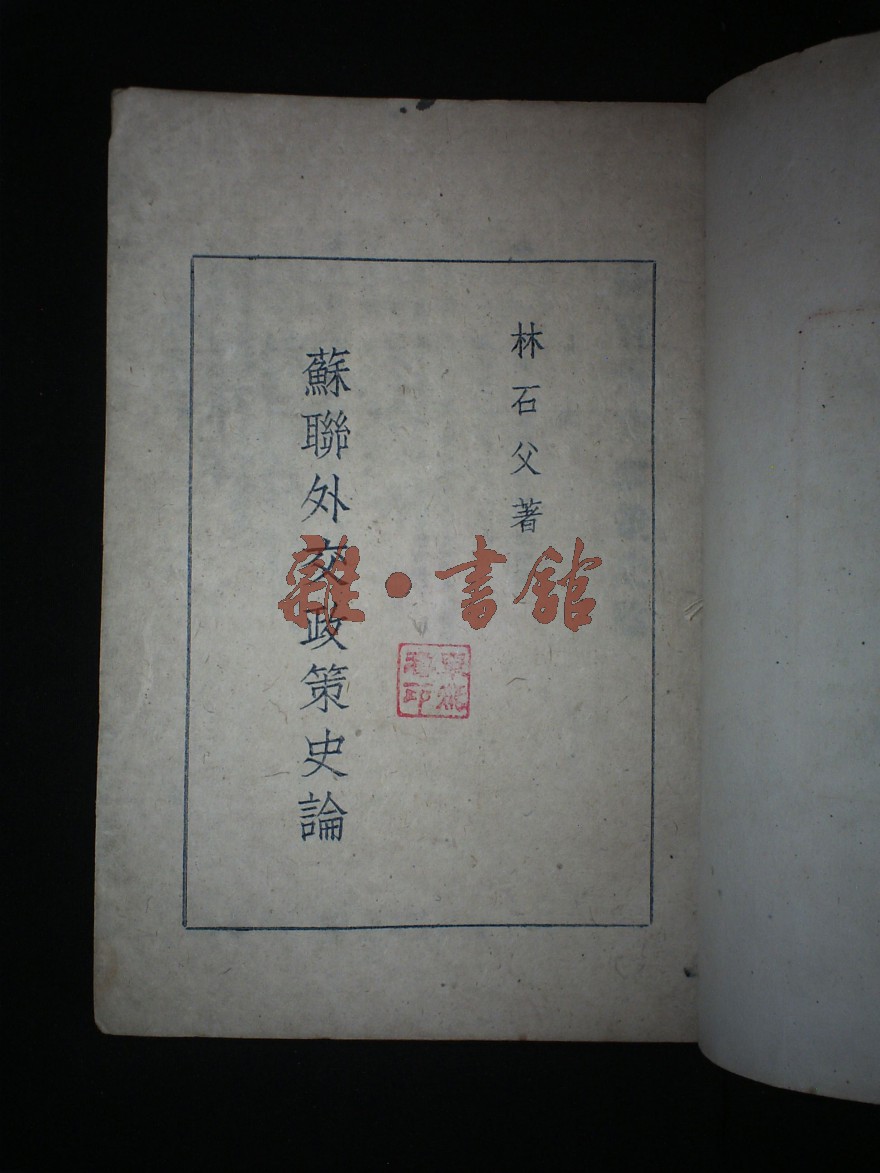 林石父著
蘇聯外交政策史論
雜·書館